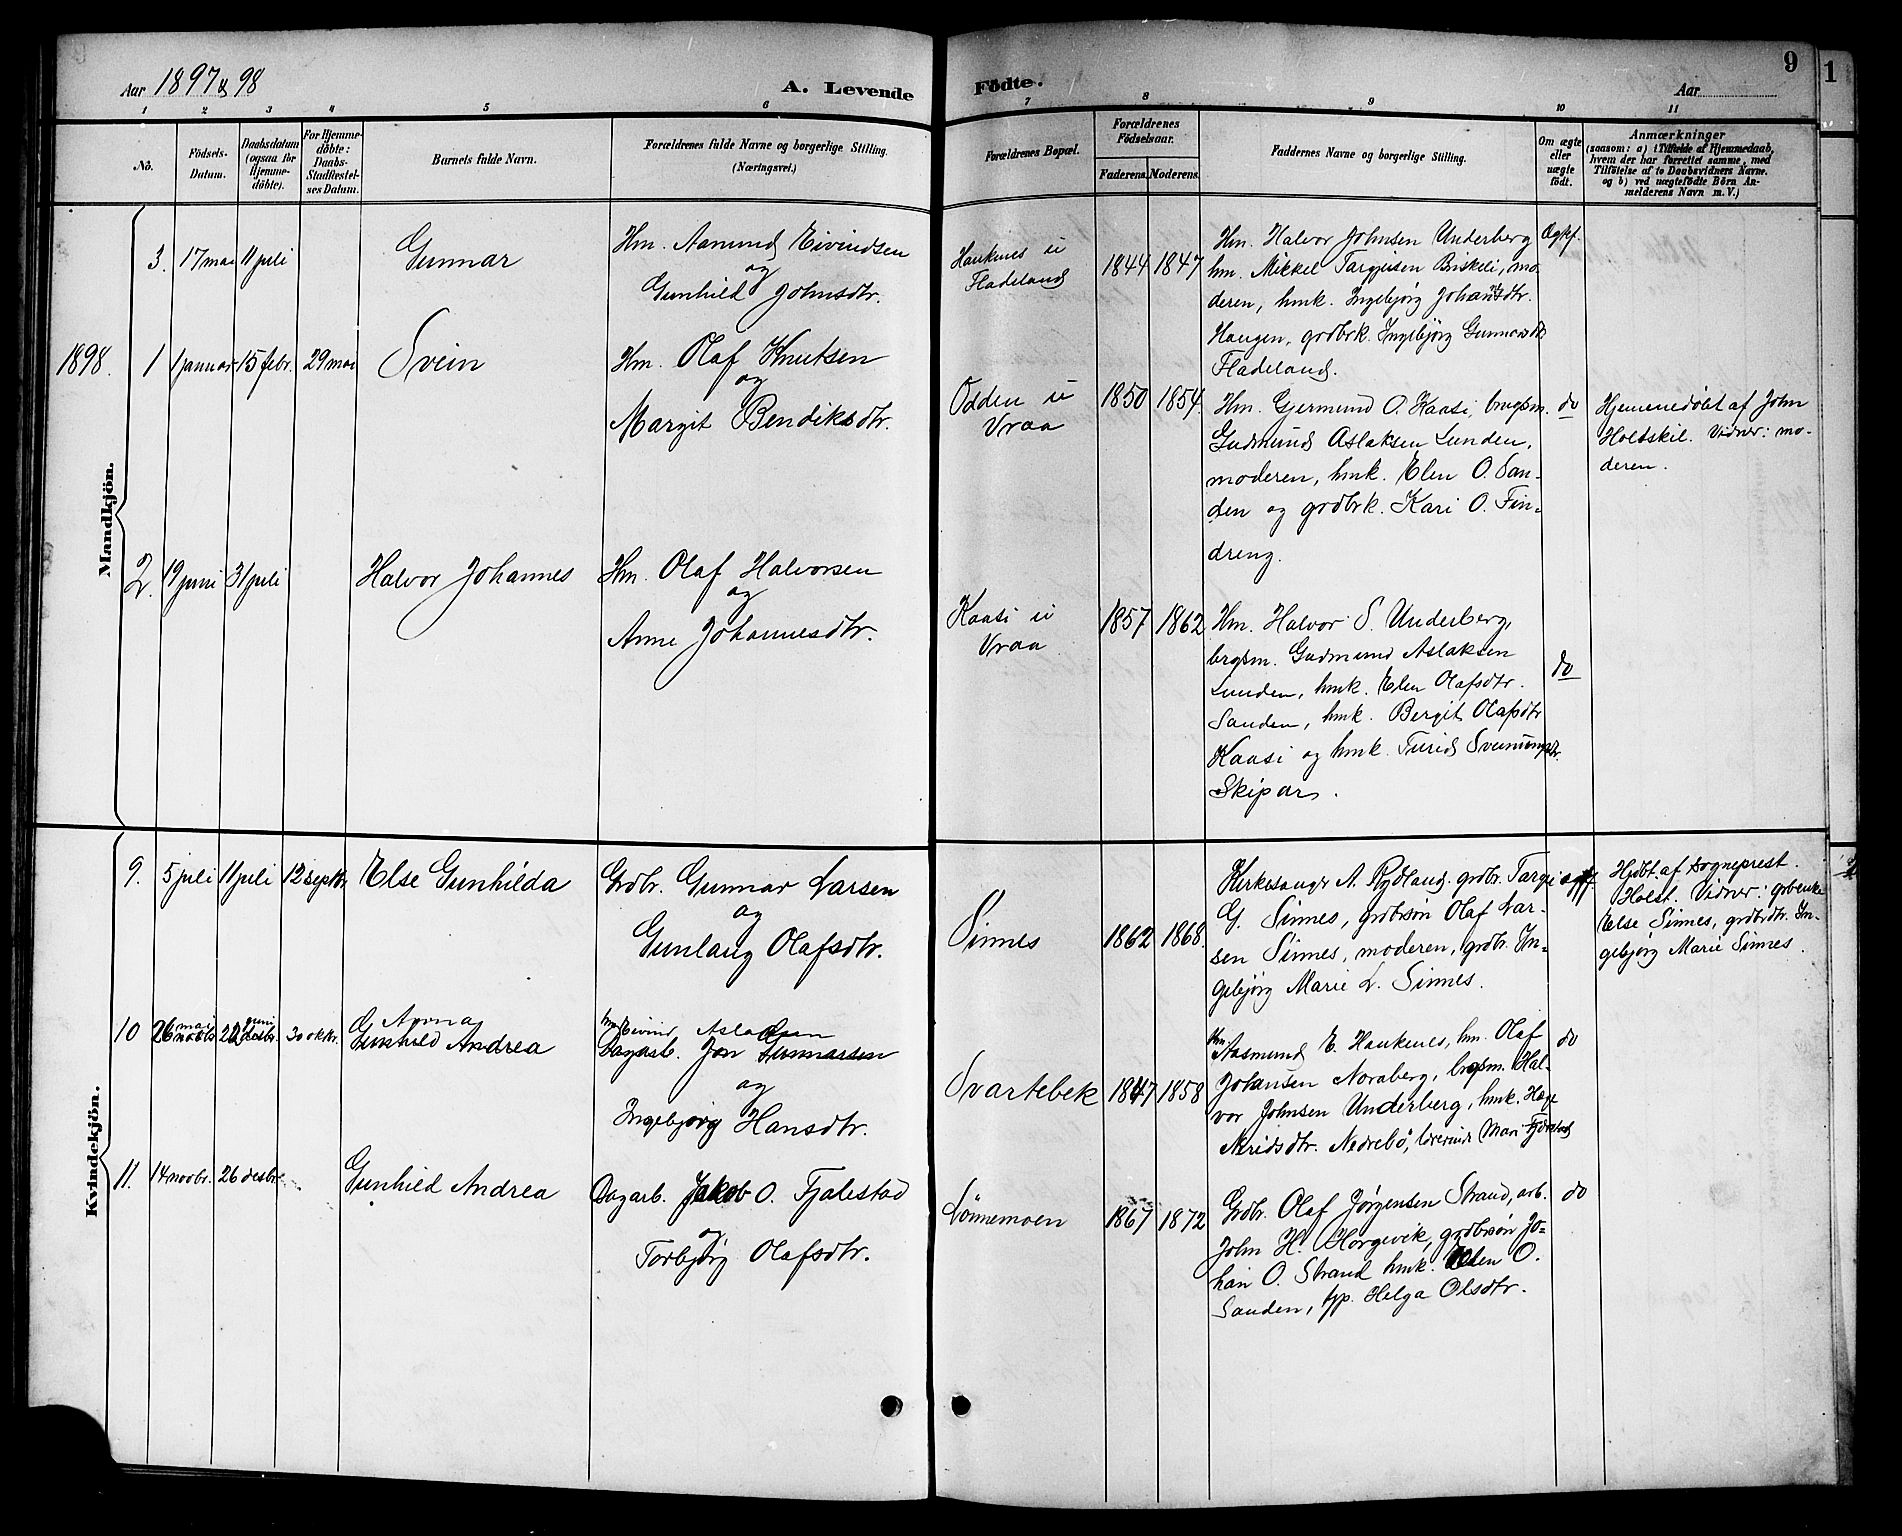 Aar 1897 & 98
A. Levende
Födte.
9
Aar
1
1
2
3
4
5
6
7
8
9
10
11
No.
Födsels-
Datum.
Daabsdatum
(ogsaa for
Hjemme-
döbte).
For Hjemme-
döbte:
Daabs-
Stadfæstel-
ses Datum.
Barnets fulde Navn.
Forældrenes fulde Navne og borgerlige Stilling.
(Næringsvei.)
Forældrenes Bopæl.
Forældrenes
Födselsaar.
Faderens.
Moderens.
Faddernes Navne og borgerlige Stilling.
Om ægte
eller
uægte
födt.
Anmærkninger
(saasom: a) i Tilfælde af Hjemmedaab,
hvem der har forrettet samme, med
Tilföielse af to Daabsvidners Navne.
og b) ved uægtefödte Börn An-
melderens Navn m. V.)
Mandkjön.
3. 17 mai 11 juli
Gunnar
Hm. Aamund Eivindsen
og
Gunhild Johnsdtr.
Haukenes u
Fladeland
1844 1847
Hm. Halvor Johnsen Underberg
hm. Mikkel Targjeisen Briskeli, mo-
deren, hmk. Ingebjørg Johansdtr.
Haugen, grdbrk. Ingebjörg Gunnarsdtr
Fladeland.
Ægtf.
1898.
1 1 januar 15 febr. 29 mai
Svein
Hm. Olaf Knutsen
og
Margit Bendiksdtr.
Odden u
Vraa
1850 1854.
Hm. Gjermund O. Kaasi, brugsm.
Gudmund Aslaksen Lunden,
moderen, hmk. Elen O. San-
den og grdbrk. Kari O. Fin-
dreng.
do
Hjemmedøbt af John
Holtskil. Vidner: mo-
deren.
2. 19 juni 31 juli
Halvor Johannes
Hm. Olaf Halvorsen
og
Anne Johannesdtr.
Kaasi u
Vraa
1857 1862
Hm. Halvor S. Underberg,
brgsm. Gudmund Aslaksen
Lunden, hmk. Elen Olafsdtr.
Sanden, hmk. Bergit Olafsdtr
Kaasi og hmk. Turid Sveinungsdtr.
Skipars.
do
Kvindekjön.
9. 5 juli 11 juli 12 septbr
Else Gunhilda
Grdbr. Gunnar Larsen
og
Gunlaug Olafsdtr.
Sinnes
1862 1868.
Kirkesanger A. Rydland. grdbr. Targie
G. Sinnes, grdbrsön Olaf Lar-
sen Sinnes, moderen, grdbr. In-
gebjörg Marie L. Sinnes.
ægtf
Hjdbt. af Sogneprest.
Holst. Vidner: grbenke
Else Sinnes, grdbrdtr. In-
gebjørg Marie Sinnes.
10 26 mai 22 juni 30 oktbr.
Anna
Gunhild Andrea
Hm Eivind Aslaksen
Dagarb. Jon Gunnarsen
og
Ingebjørg Hansdtr.
Svartebek
1847 1858
Hm Aasmund E. Haukenes, hm. Olaf
Johansen Noraberg, brgsm. Hal-
vor Johnsen Underberg, hmk. Hæge
Neridsdtr. Nedrebö, lærerinde Mari Fjalestad
do
11. 14 novbr. 26 desbr.
Gunhild Andrea
Dagarb. Jakob O. Fjalestad
og
Torbjörg Olafsdtr.
Lönnemoen
1867 1872
Grdbr. Olaf Jörgensen Strand, arb.
John H. Horgevik, grdbrsön Jo-
han O. Strand hmk. Elen O.
Sanden, tjp. Helga Olsdtr.
do